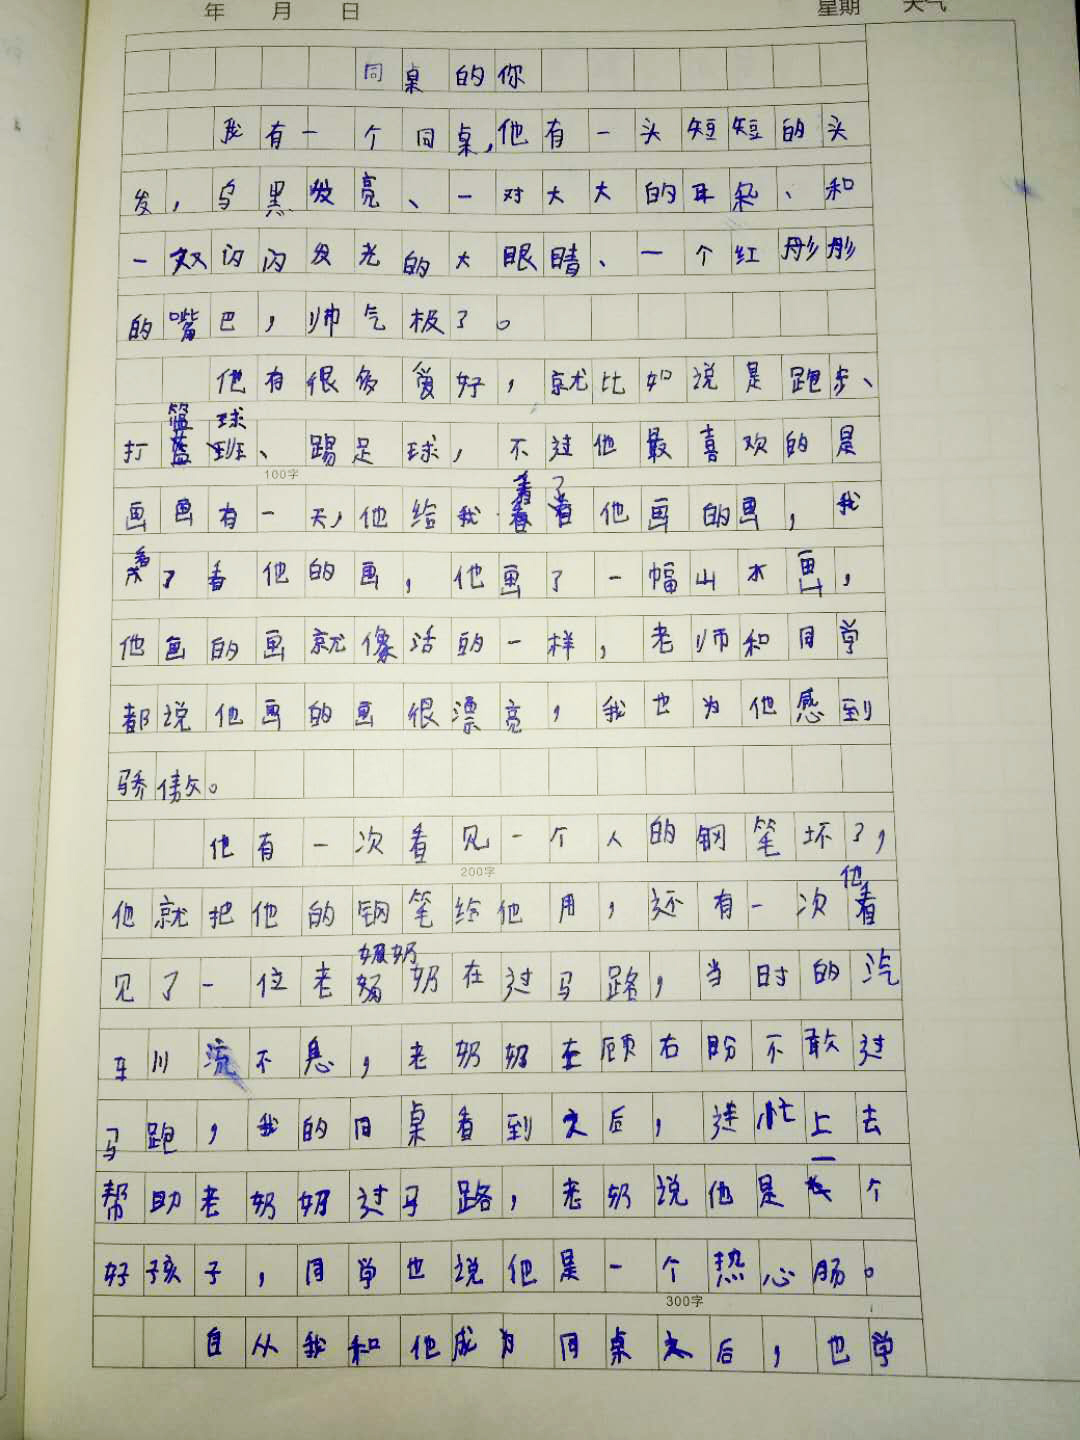 年 月 日 星期 天气
同桌的你
我有一个同桌,他有一头短短的头
发，乌黑发亮、一对大大的耳朵、和
一双闪闪发光的大眼睛、一个红彤彤
的嘴巴，帅气极了。
他有很多爱好，就比如说是跑步、
打篮球、踢足球，不过他最喜欢的是
100字
画画有一天,他给我看了他画的画，我
看了看他的画，他画了一幅山水画，
他画的画就像活的一样，老师和同学
都说他画的画很漂亮，我也为他感到
骄傲。
他有一次看见一个人的钢笔坏了，
200字
他就把他的钢笔给他用，还有一次他看
见了一位老奶奶在过马路，当时的汽
车川流不息，老奶奶在顾右盼不敢过
马跑，我的同桌看到之后，连忙上去
帮助老奶奶过马路，老奶说他是一个
好孩子，同学也说他是一个热心肠。
300字
自从我和他成为同桌之后，也学